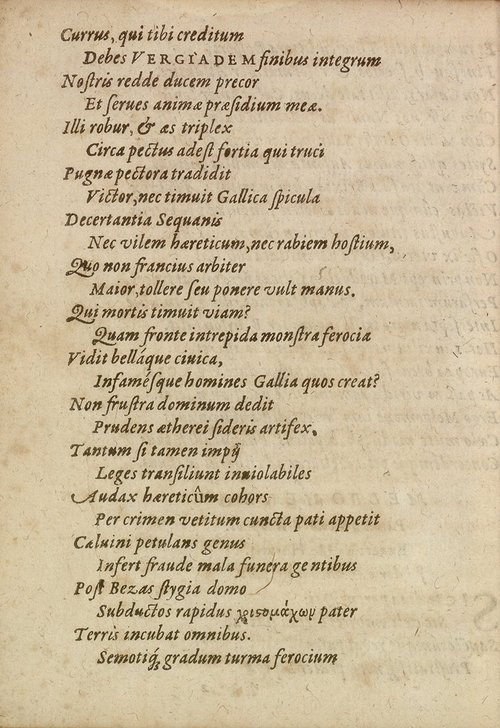 Currus, qui tibi creditum
Debes VERGIADEM finibus integrum
Nostris redde ducem precor
Et serues animæ præsidium meæ.
Illi robur, & æs triplex
Circa pectus adest fortia qui truci
Pugnæ pectora tradidit
Victor, nec timuit Gallica spicula
Decertantia Sequanis
Nec vilem hæreticum, nec rabiem hostium,
Quo non francius arbiter
Maior, tollere seu ponere vult manus.
Qui mortis timuit viam?
Quam fronte intrepida monstra ferocia
Vidit belláque ciuica,
Infamésque homines Gallia quos creat?
Non frustra dominum dedit
Prudens ætherei sideris artifex.
Tantum si tamen impij
Leges transiliunt inuiolabiles
Audax hæreticûm cohors
Per crimen vetitum cuncta pati appetit
Caluini petulans genus
Infert fraude mala funera gentibus
Post Bezas stygia domo
Subductos rapidus χριστομάχων pater
Terris incubat omnibus.
Semotiq́; gradum turma ferocium